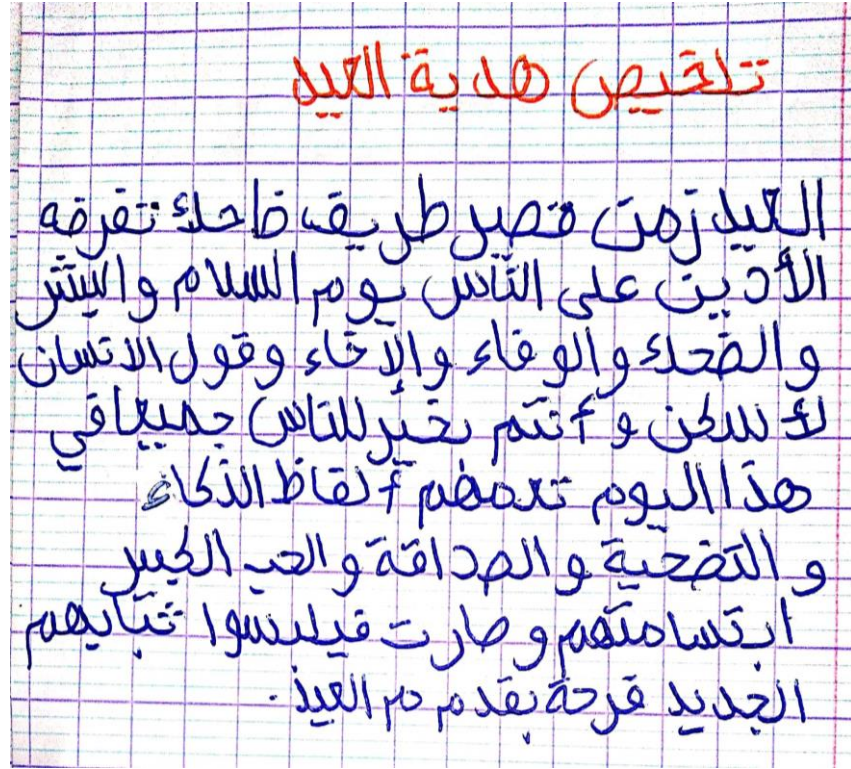 تلخيص هدية العيد
العيد زمن قصير طريف ضاحك تفرضه
الأديت على النّاس يوم السلام والبشر
والضحك والوفاء والإخاء وقول الانسان
وأنتم بخير للناس جميعا في
هذا اليوم تعمهم ألفاظ الذكاء
والتضحية والصداقة والحب الكبير
ابتسامتهم وصارت فيلبسوا ثيابهم
الجديد فرحة بقدم العيد.